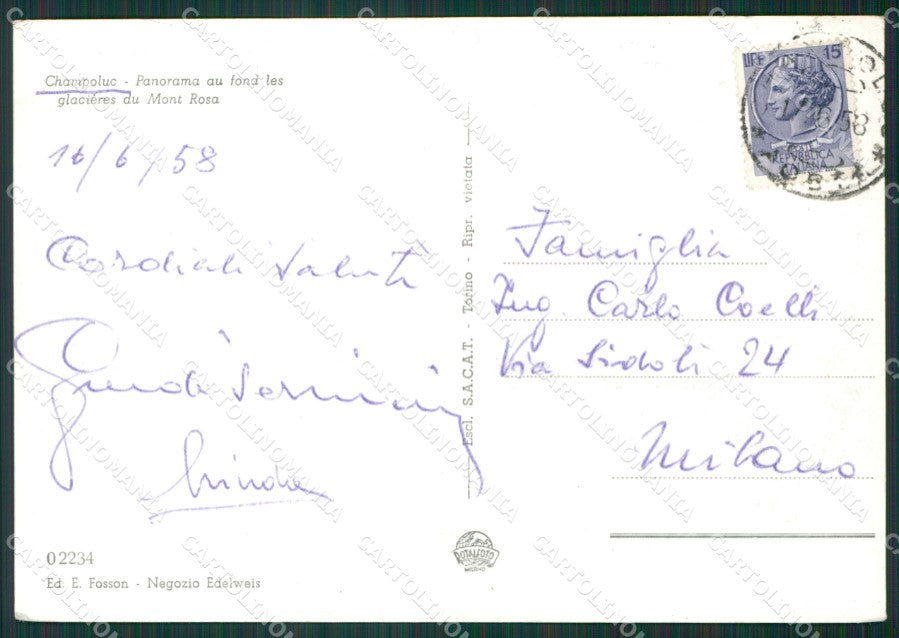 Champoluc - Panorama au fond les
glacières du Mont Rosa
16/6/58
Cordiali Saluti
02234
Ed. E. Fosson - Negozio Edelweis
Escl. S.A.C.A.T. - Torino - Ripr. vietata
LIRE 15
REPVBBLICA
ITALIANA
6.58
Famiglia
Ing. Carlo Coelli
Via Sidoli 24
Milano
ROTALFOTO
MILANO
CARTOLINOMANIA